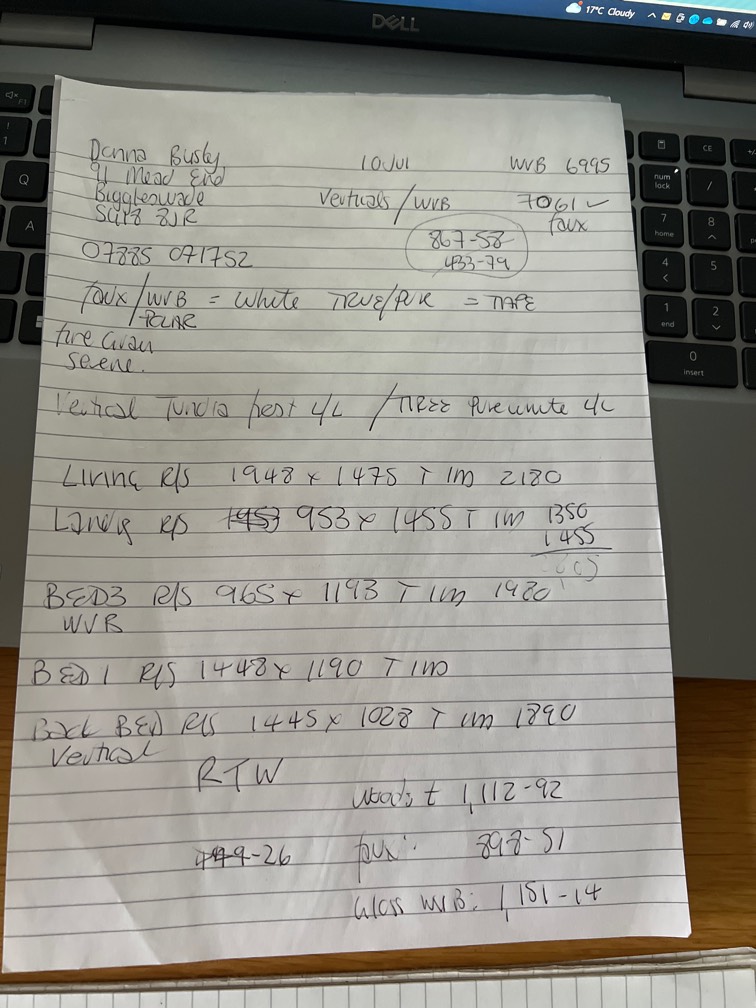 17°C Cloudy
DELL
Donna Busby 10 Jul WVB 6995
91 Mead End
Biggleswade Verticals/WVB 7061 ✓
SG18 8JR faux
867-58
07885 071752 433-79
faux/WVB = White TRUE/PUR = TAPE
POLAR
fine Grain
serene.
Vertical Tundra frost L/L / TREE Pure white L/L
Living R/S 1948 x 1475 T 1m 2180
Landig R/S 953 x 1455 T 1m 1350
1455
BED3 R/S 965 x 1193 T 1m 1920
WVB
BED 1 R/S 1448 x 1190 T 1m
Back BED R/S 1445 x 1028 T 1m 1890
Vertical
RTW
Woods £ 1,112-92
-26 faux: 898-51
Gloss WVB: 1,151-14
Q
A
num lock
CE
/
7 home
8
4
5
1 end
2
0 insert